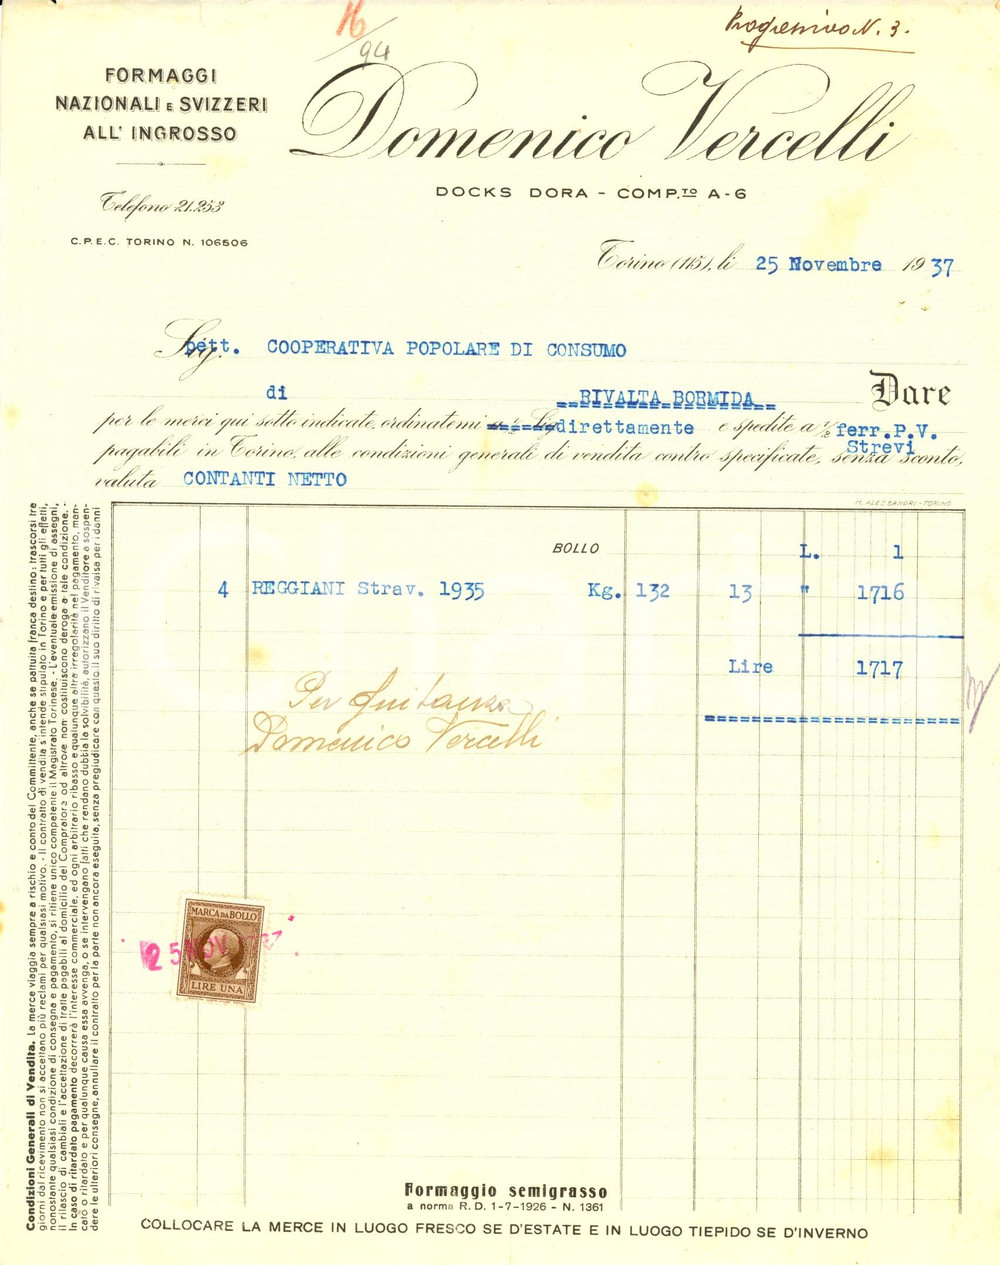 16
94
Progressivo N. 3.
FORMAGGI
NAZIONALI E SVIZZERI
ALL' INGROSSO
Domenico Vercelli
DOCKS DORA - COMP.TO A-6
Telefono 21.253
C.P.E.C. TORINO N. 106506
Torino (115), li 25 Novembre 1937
Sig. pett. COOPERATIVA POPOLARE DI CONSUMO
di ==RIVALTA BORMIDA== Dare
per le merci qui sotto indicate, ordinatemi direttamente e spedite a 1/2 ferr.P.V.
Strevi
pagabili in Torino, alle condizioni generali di vendita contro specificate, senza sconto,
valuta CONTANTI NETTO
M. ALESSANDRI - TORINO
BOLLO L. 1
4 REGGIANI Strav. 1935 Kg. 132 13 " 1716
Lire 1717
Per quitanza
Domenico Vercelli
MARCA DA BOLLO
25 NOV 37
LIRE UNA
Formaggio semigrasso
a norma R. D. 1-7-1926 - N. 1361
COLLOCARE LA MERCE IN LUOGO FRESCO SE D'ESTATE E IN LUOGO TIEPIDO SE D'INVERNO
Condizioni Generali di Vendita. La merce viaggia sempre a rischio e conto del Committente, anche se pattuita franca destino: trascorsi tre
giorni dal ricevimento non si accettano più reclami per qualsiasi motivo. - Il contratto di vendita s'intende stipulato in Torino e per tutti gli effetti,
nonostante qualsiasi condizione di consegna e pagamento, si ritiene unico competente il Magistrato Torinese. - L'eventuale emissione di assegni,
il rilascio di cambiali e l'accettazione di tratte pagabili al domicilio del Compratore od altrove non costituiscono deroga a tale condizione. -
In caso di ritardato pagamento decorrerà l'interesse commerciale, ed ogni arbitrario ribasso e qualunque altra irregolarità nel pagamento, man-
calo o ritardato e per qualunque causa essa avvenga, o se intervengano fatti che rendano dubbia la solvibilità, autorizzano il Venditore a sospen-
dere le ulteriori consegne, annullare il contratto per la parte non ancora eseguita, senza pregiudicare con questo il suo diritto di rivalsa per i danni